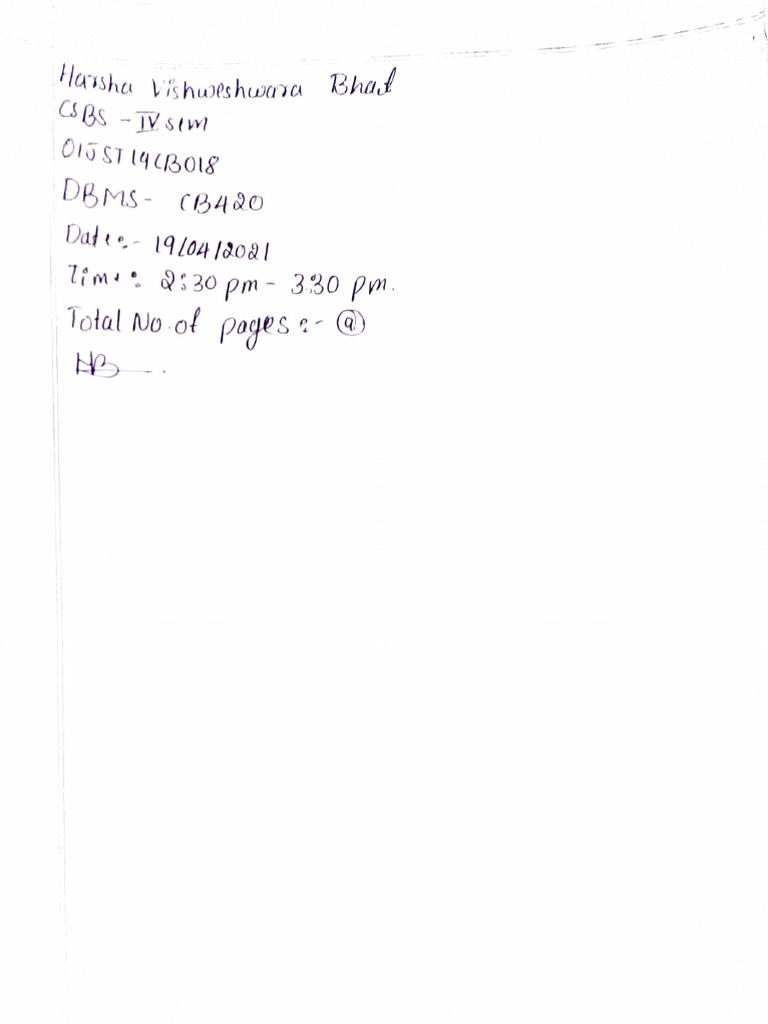 Harsha Vishweshwara Bhat
CSBS - IV sem
01JST19CB018
DBMS - CB420
Date :- 19/04/2021
Time : 2:30 pm - 3:30 pm.
Total No. of pages :-
HB